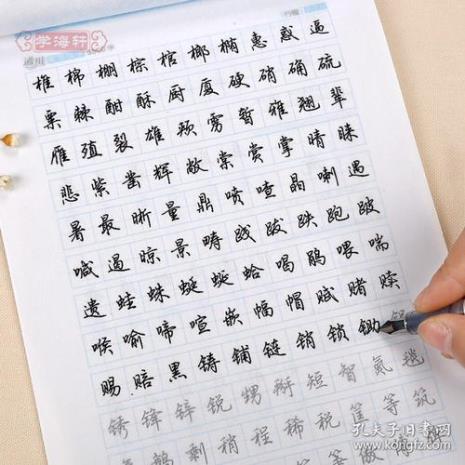 学海轩
通用
行楷
椎棉棚棕棺椰椭惠惑逼
粟棘酣酥厨厦硬硝确硫
雁殖裂雄颊雳暂雅翘辈
悲紫凿辉敞棠赏掌晴睐
暑最晰量鼎喷喳晶喇遇
喊遏晾景畴践跋跌跑跛
遗蛙蛛蜓蜒蛤喝鹃喂喘
喉喻啼喧嵌幅帽赋赌赎
赐赔黑铸铺链销锁锄锅
锈锋锌锐甥掰短智氮毯
氯鹅剩稍程稀税筐等筑
孔夫子旧书网
www.kongfz.com